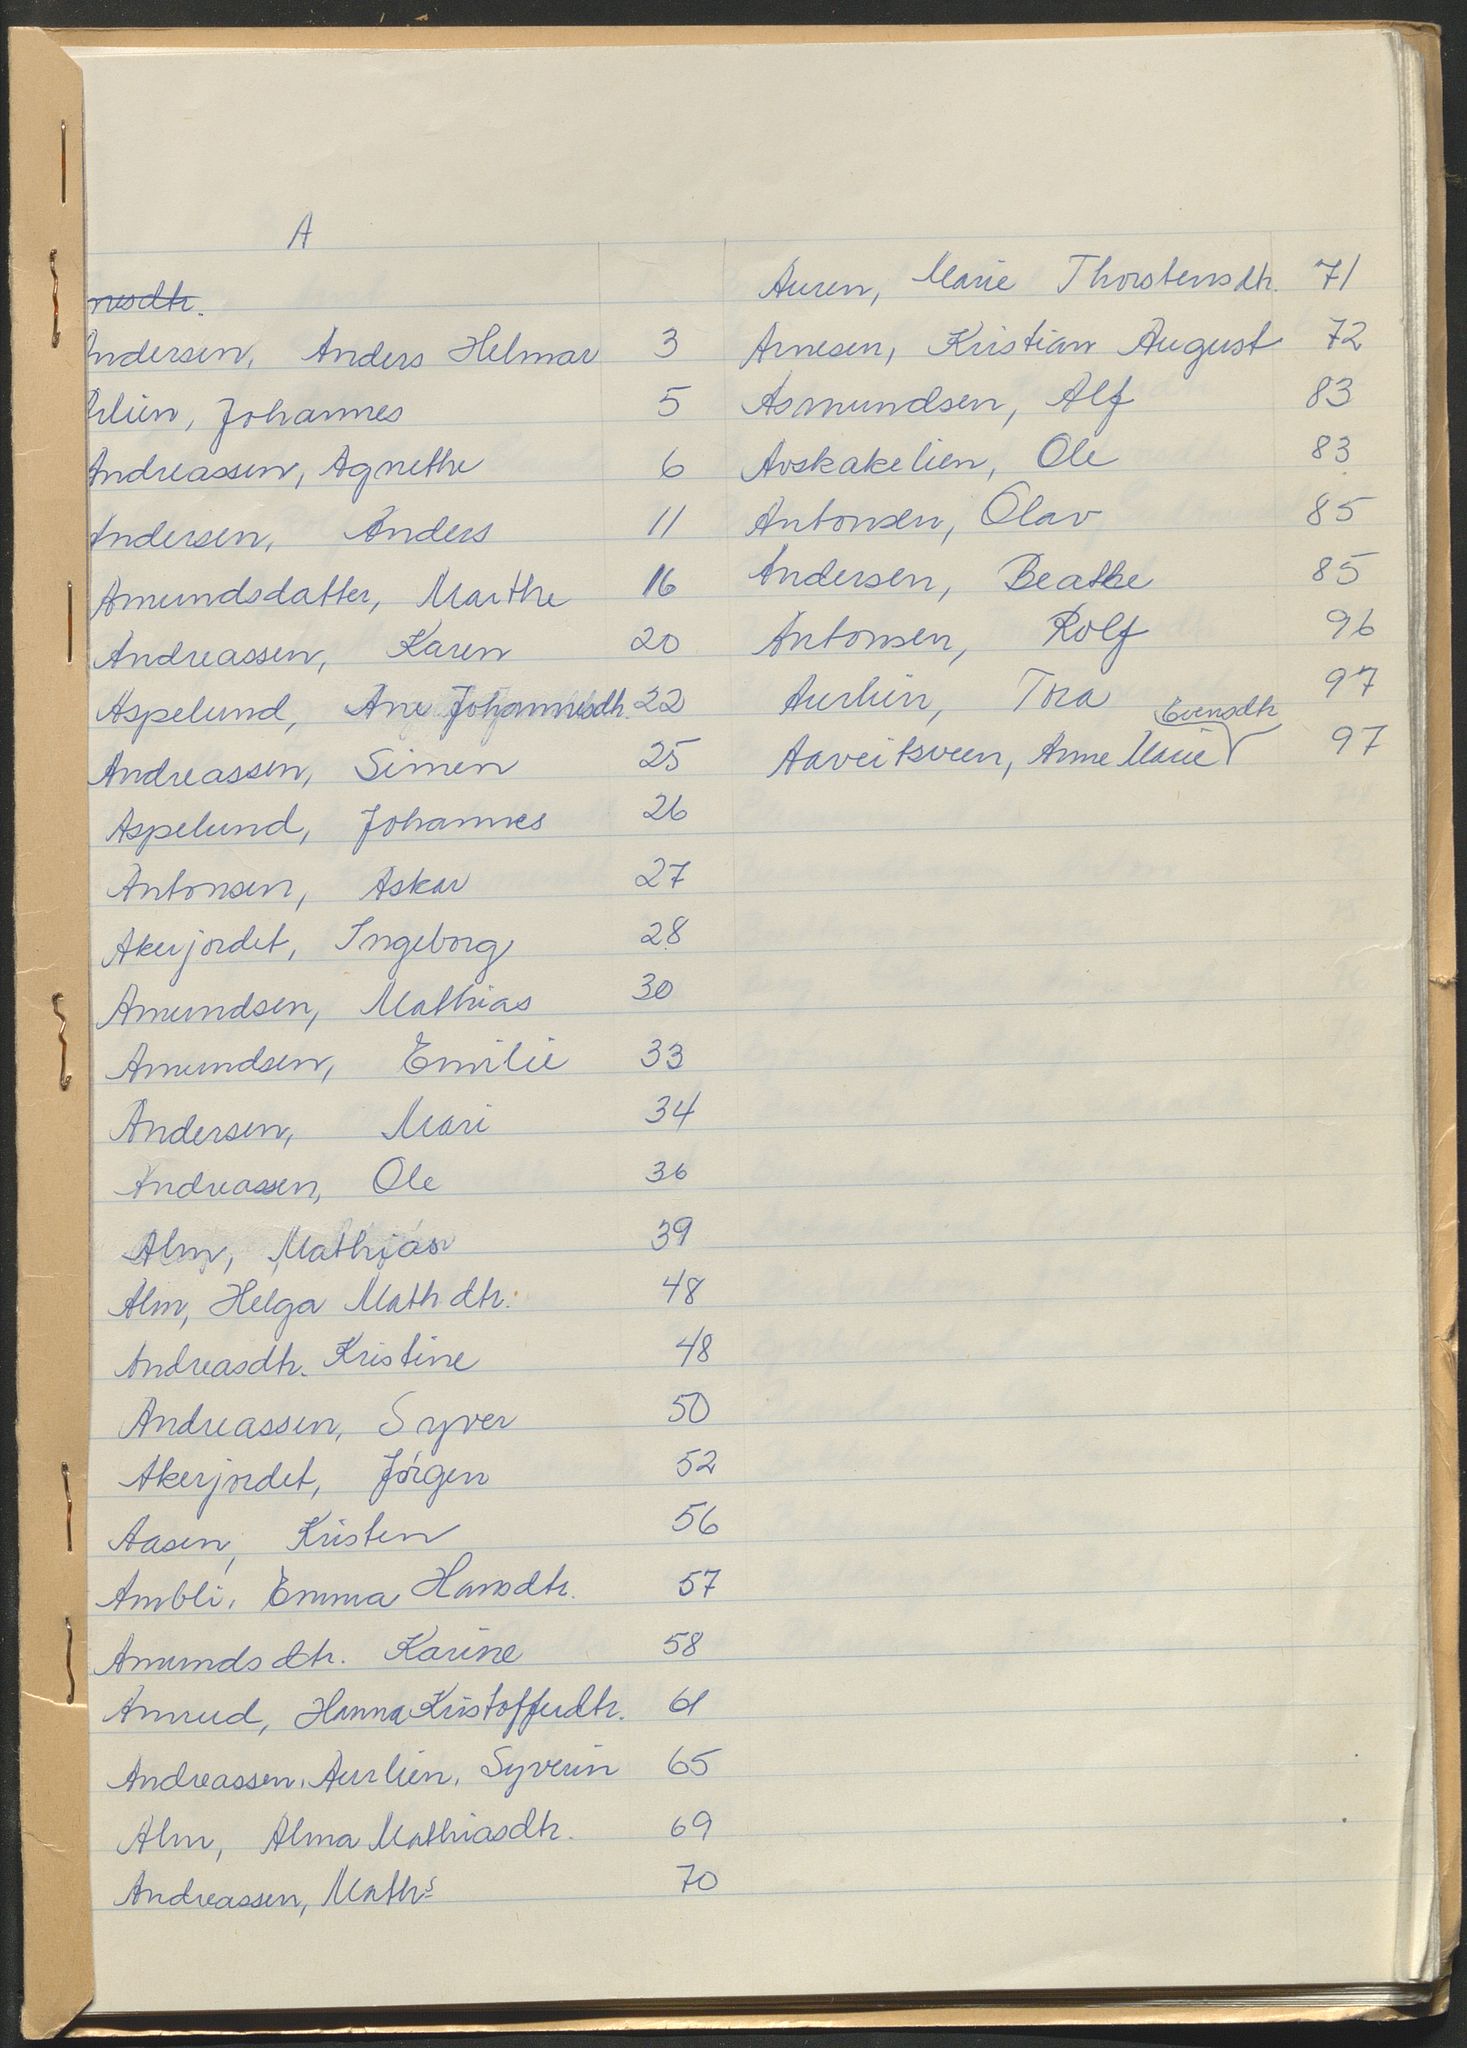 A
nesdtr.
Andersen, Anders Helmar 3
rlien, Johannes 5
Andreassen, Agnethe 6
Andersen, Anders 11
Amundsdatter, Marthe 16
Andreassen, Karen 20
Aspelund, Ane Johannesdtr. 22
Andreassen, Simen 25
Aspelund, Johannes 26
Antonsen, Askar 27
Akerjordet, Ingeborg 28
Amundsen, Mathias 30
Amundsen, Emilie 33
Andersen, Mari 34
Andreassen, Ole 36
Alm, Mathias 39
Alm, Helga Math.dtr. 48
Andreasdtr. Kristine 48
Andreassen, Syver 50
Akerjordet, Jörgen 52
Aasen, Kristen 56
Ambli, Emma Hansdtr. 57
Amundsdtr. Karine 58
Amrud, Hanna Kristofferdtr. 61
Andreassen, Aurlien, Syverin 65
Alm, Alma Mathiasdtr. 69
Andreassen, Maths 70
Auren, Marie Thorstensdtr. 71
Arnesen, Kristian August 72
Asmundsen, Alf 83
Avskakelien, Ole 83
Antonsen, Olav 85
Andersen, Beathe 85
Antonsen, Rolf 96
Aurlien, Tora 97
Evensdtr
Aaveitsveen, Anne Marie 97